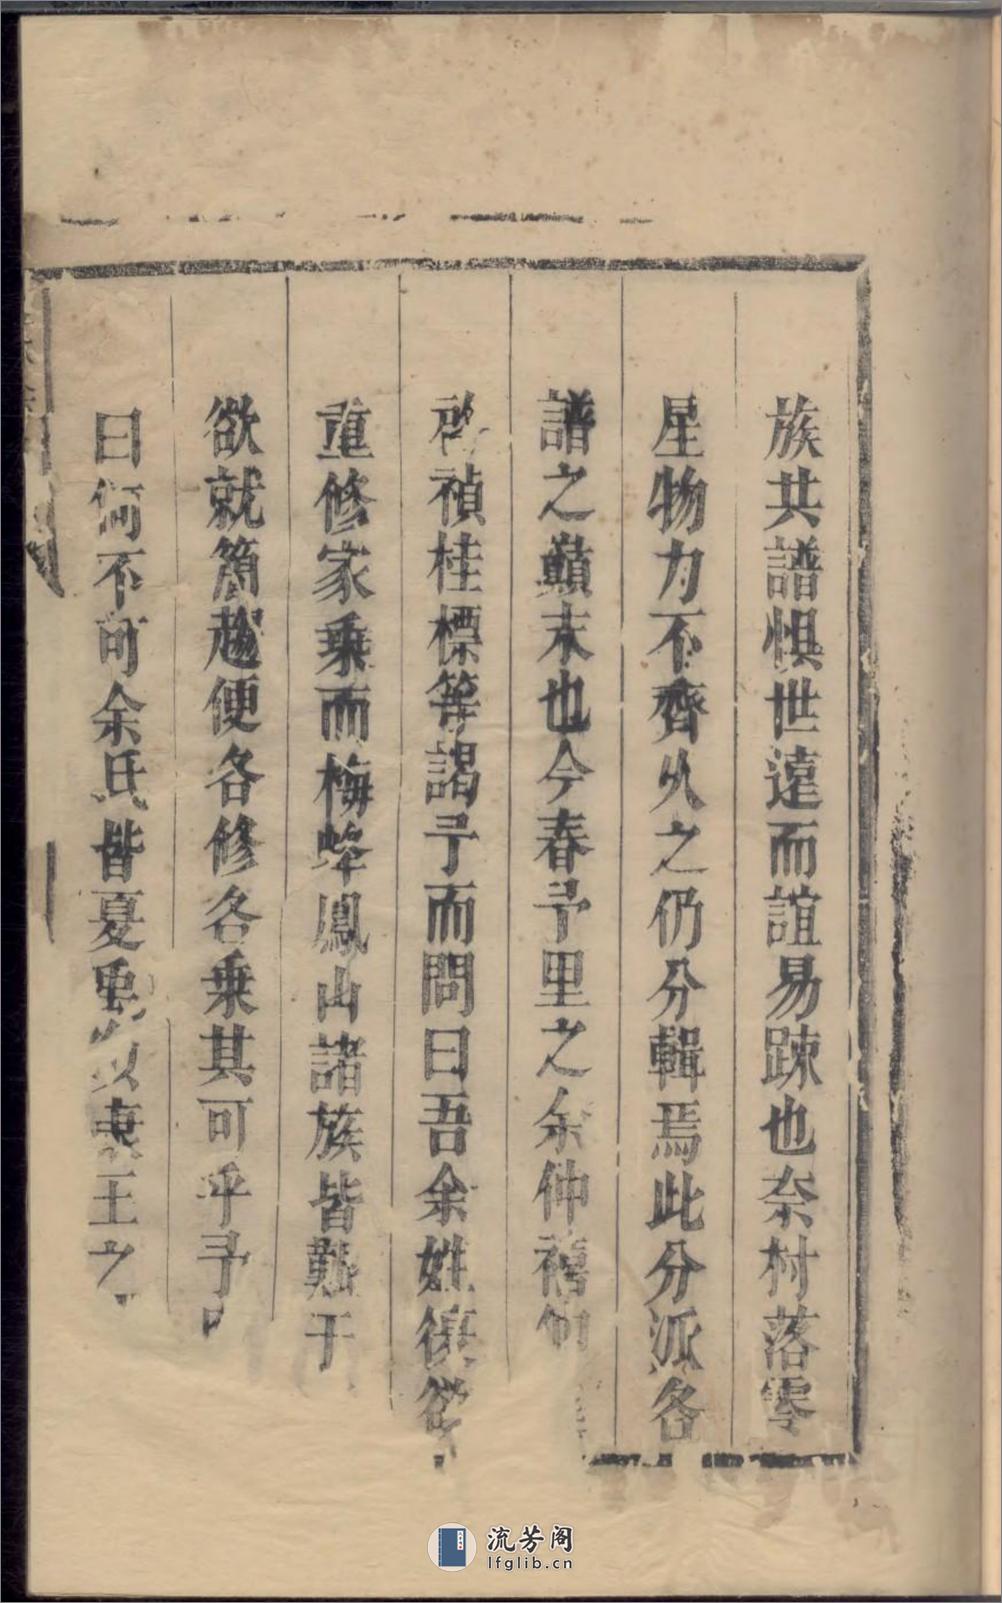 族共譜惧世遠而誼易踈也奈村落零
星物力不齊久之仍分輯焉此分派各
譜之巔末也今春予里之余仲禧
啓禎桂標等謁予而問曰吾余姓復欲
重修家乗而梅峰鳳山諸族皆艱于
欲就簡趨便各修各乗其可乎予
曰何不可余氏偕夏王之
流芳阁
lfglib.cn